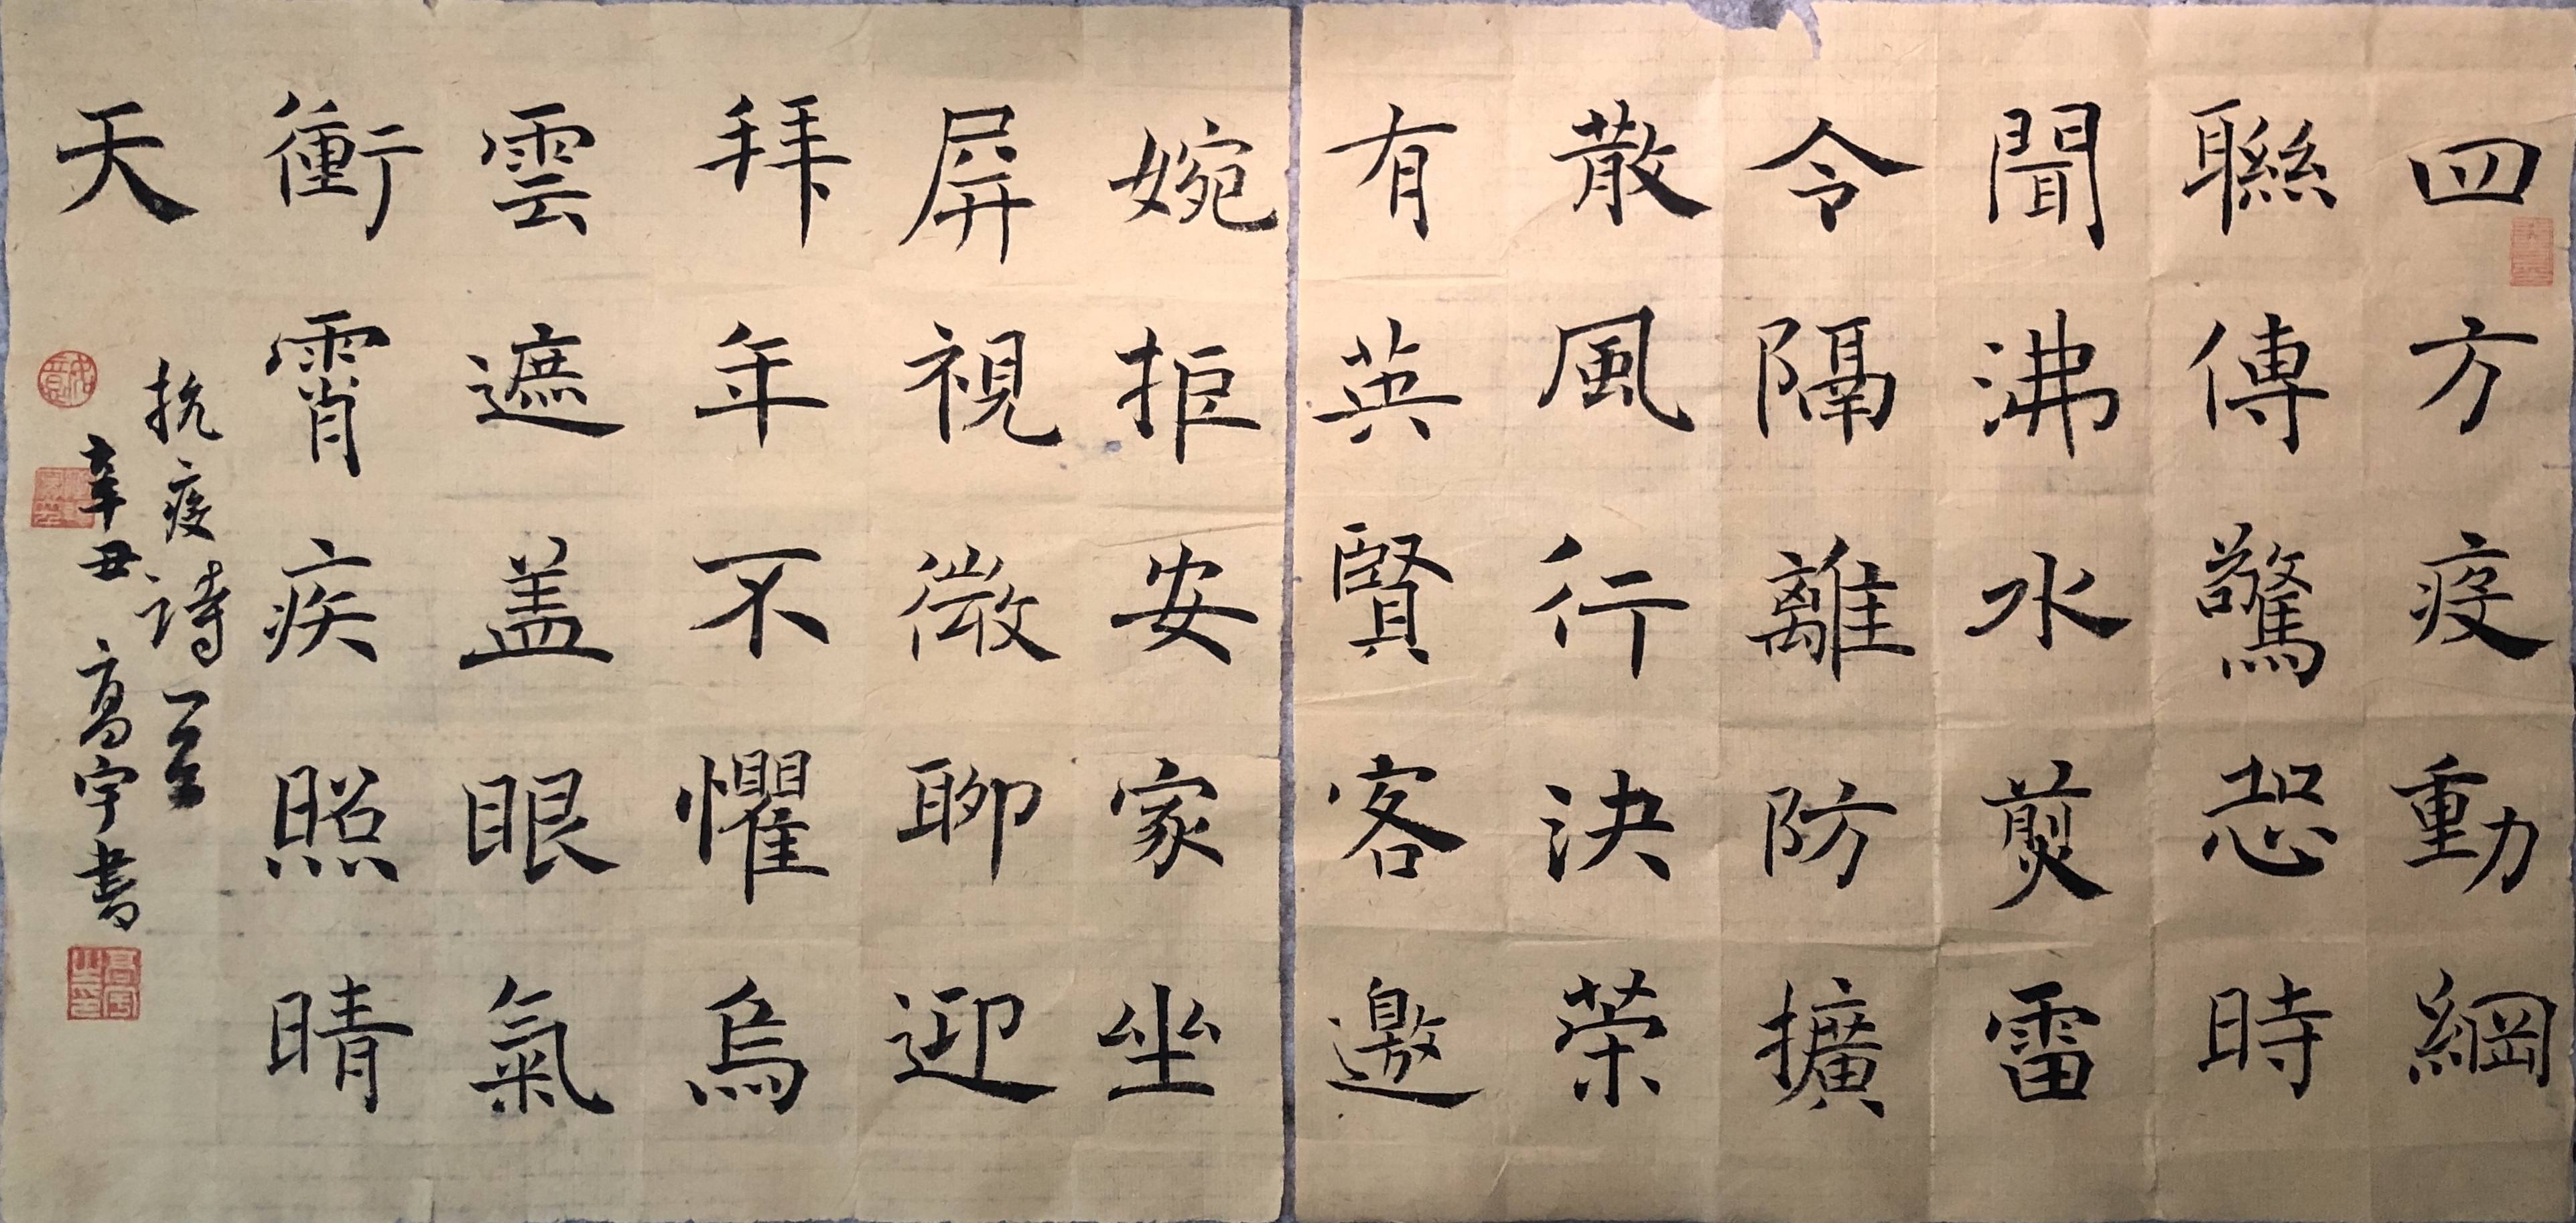 四方疫動綱
聯傳驚恐時
聞沸水煎雷
令隔離防擴
散風行決榮
有英賢客邀
婉拒安家坐
屏視微聊迎
拜年不懼烏
雲遮盖眼氣
衝霄疾照晴
天
抗疫诗一首
辛丑高宇書